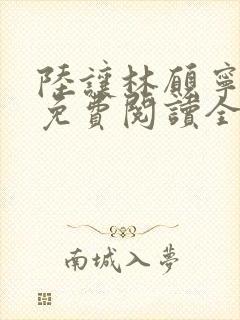 陸讓林顧寧
免費閱讀全
南城入夢